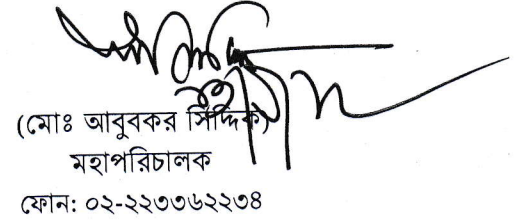 (মোঃ আবুবকর সিদ্দিক)
মহাপরিচালক
ফোন: ০২-২২৩৩৬২২৩৪